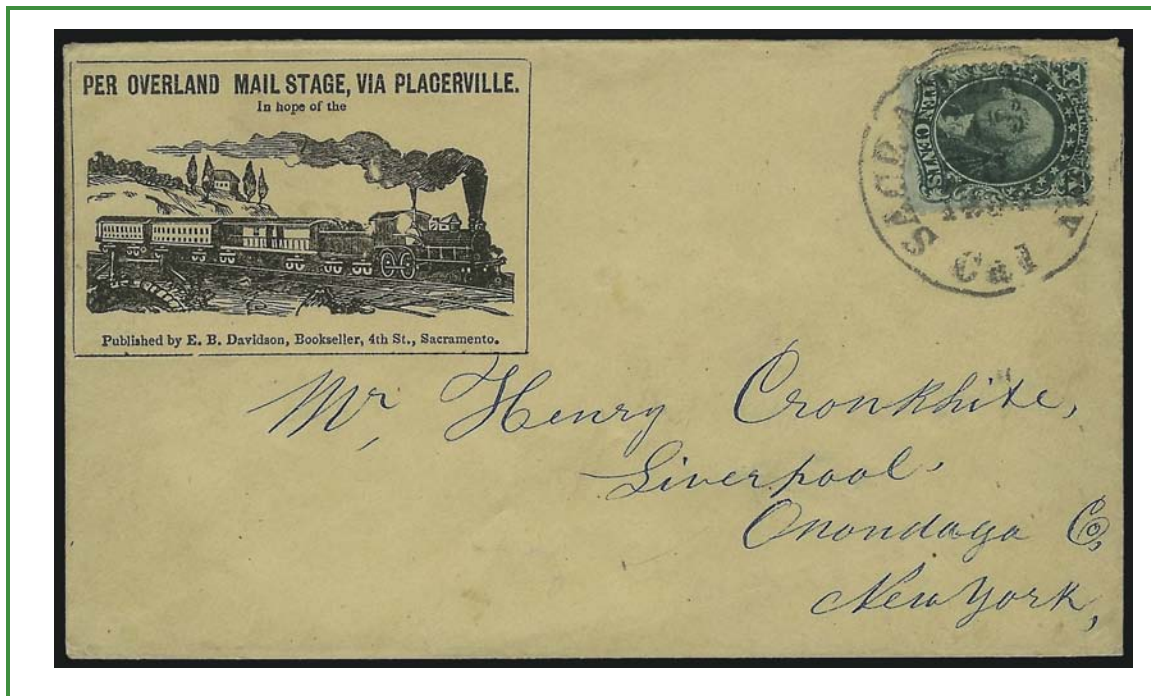 PER OVERLAND MAIL STAGE, VIA PLACERVILLE.
In hope of the
Published by E. B. Davidson, Bookseller, 4th St., Sacramento.
X POSTAGE X
TEN CENTS
SACRA
Cal
Mr, Henry Cronkhite,
Liverpool.
Onondaga Co,
New York,